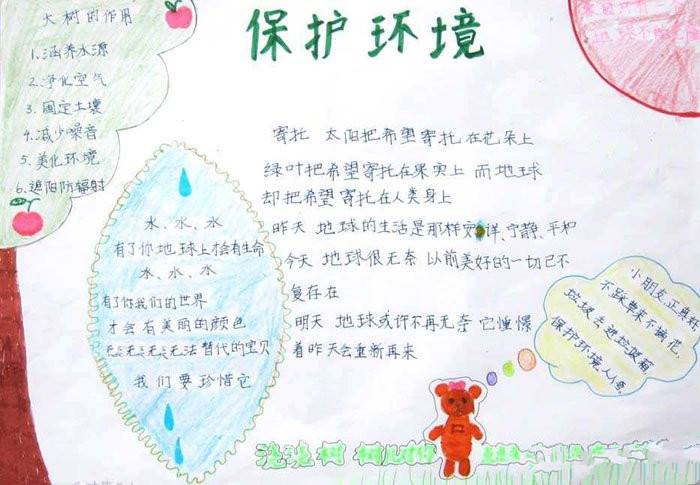 保护环境
大树的作用
1.涵养水源
2.净化空气
3.固定土壤
4.减少噪音
5.美化环境
6.遮阳防辐射
水、水、水
有了你地球上才会有生命
水、水、水
有了你我们的世界
才会有美丽的颜色
无法替代的宝贝
我们要珍惜它
寄托 太阳把希望寄托在花朵上
绿叶把希望寄托在果实上 而地球
却把希望寄托在人类身上
昨天 地球的生活是那样 详、宁静、平和
今天 地球很无奈 以前美好的一切已不
复存在
明天 地球或许不再无奈 它憧憬
着昨天会重新再来
小朋友正真好
不踩草来不摘花
垃圾去进垃圾箱
保护环境人人
浇浇树 树儿